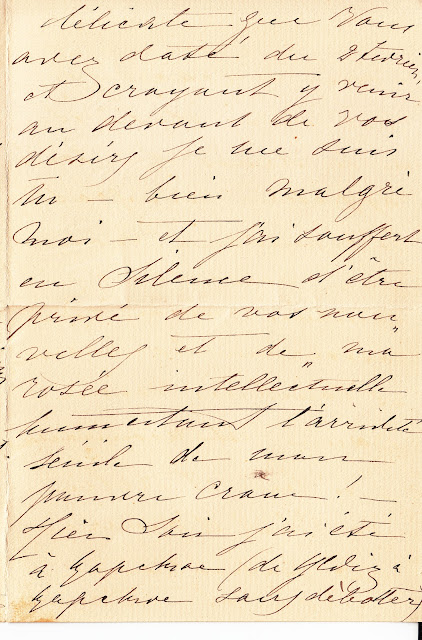 délicate que Vous
avez daté du 2 février,
et croyant y venir
au devant de vos
désirs je me suis
tu – bien malgré
moi – et j'ai souffert
en Silence d'être
privé de vos nou
velles et de "ma
rosée intellectuelle"
humectant l'aridité
sénile de mon
pauvre crâne ! –
Hier Soir j'ai été
à (de Yldiz à
sans débotter)